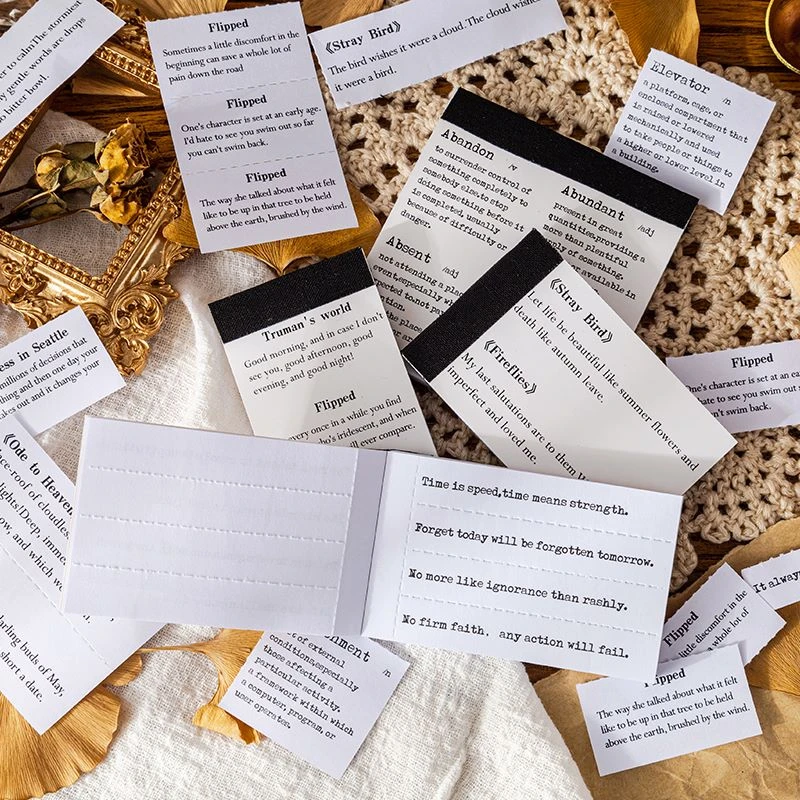 er to calmThe stormiest
ry gentle words are drops
to bitter howl.
Flipped
Sometimes a little discomfort in the
beginning can save a whole lot of
pain down the road
Flipped
One's character is set at an early age.
I'd hate to see you swim out so far
you can't swim back.
Flipped
The way she talked about what it felt
like to be up in that tree to be held
above the earth, brushed by the wind.
《Stray Bird》
The bird wishes it were a cloud. The cloud wishes
it were a bird.
Elevator /n
a platform, cage, or
enclosed compartment that
is raised or lowered
mechanically and used
to take people or things to
a higher or lower level in
a building.
Abandon /v
to surrender control of
something completely to
somebody else.to stop
doing something before it
is completed, usually
because of difficulty or
danger.
Abundant /adj
present in great
quantities.providing a
more than plentiful
supply of something.
or available in
Absent /adj
not attending a place
event,especially wh
expected to.not pay
the place
Truman's world
Good morning, and in case I don't
see you, good afternoon, good
evening, and good night!
Flipped
every once in a while you find
who's iridescent, and when
will ever compare.
《Stray Bird》
Let life be beautiful like summer flowers and
death like autumn leave.
《Fireflies》
My last salutations are to them
imperfect and loved me.
ess in Seattle
millions of decisions that
thing and then one day your
akes out and it changes your
Flipped
One's character is set at an ea
I'd hate to see you swim out s
can't swim back.
《Ode to Heaven
ce-roof of cloudles
lights!Deep, imme
ow, and which w
darling buds of May,
short a date.
Time is speed,time means strength.
Forget today will be forgotten tomorrow.
No more like ignorance than rashly.
No firm faith, any action will fail.
nment /n
of external
conditions,especially
those affecting a
particular activity.
a framework within which
a computer, program, or
user operates.
Flipped
little discomfort in the
whole lot of
It always
Flipped
The way she talked about what it felt
like to be up in that tree to be held
above the earth, brushed by the wind.